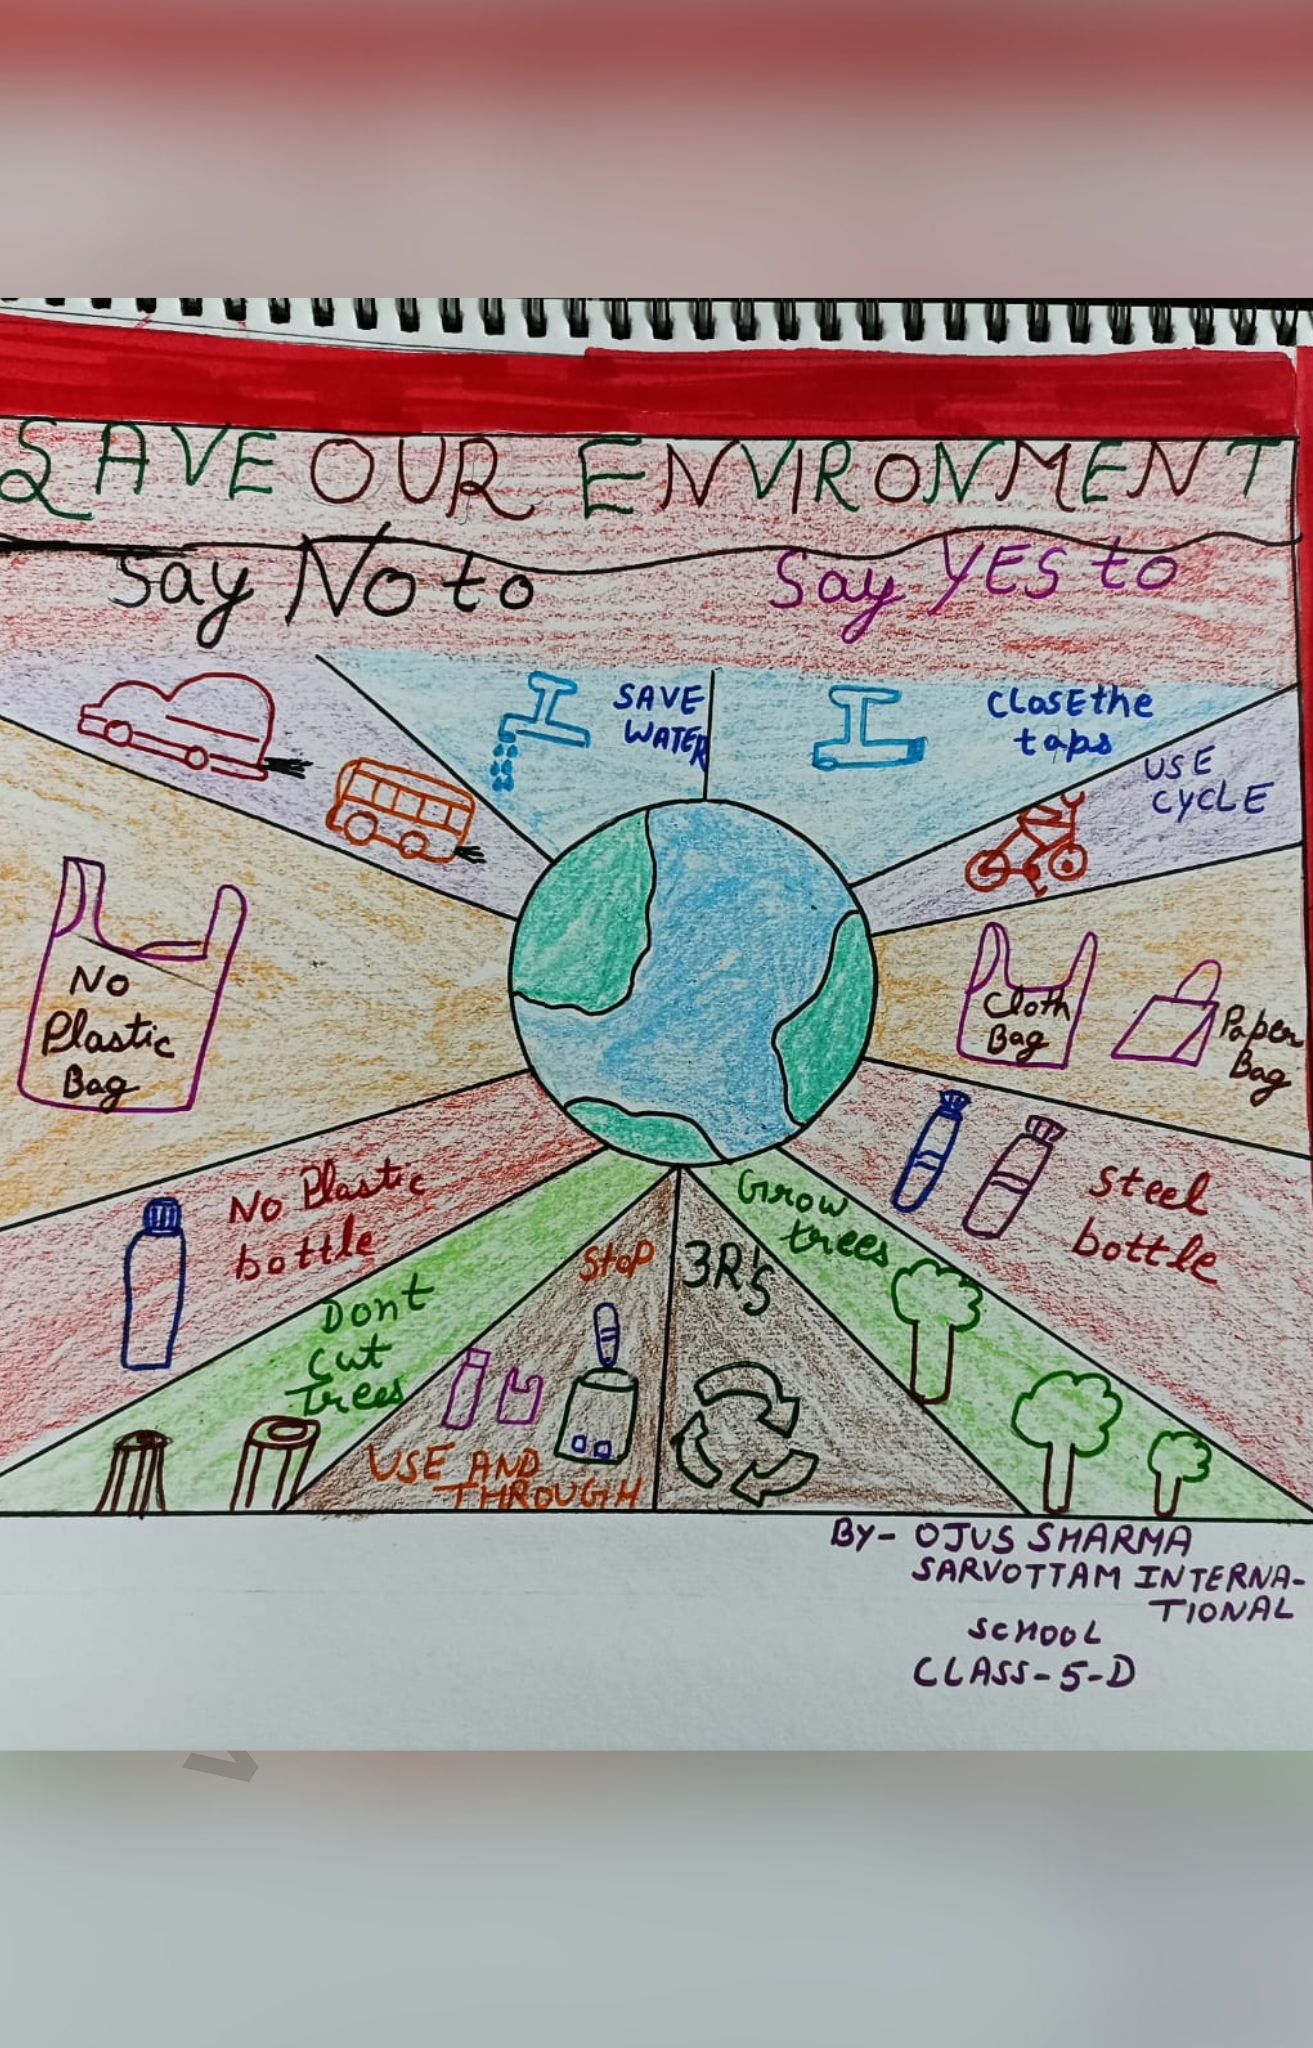 SAVE OUR ENVIRONMENT
Say No to
Say YES to
SAVE
WATER
CLOSE the
taps
USE
CYCLE
No
Plastic
Bag
Cloth
Bag
Paper
Bag
No Plastic
bottle
Steel
bottle
Dont
cut
trees
Grow
trees
Stop
USE AND
THROUGH
3R's
BY- OJUS SHARMA
SARVOTTAM INTERNA-
TIONAL
SCHOOL
CLASS-5-D